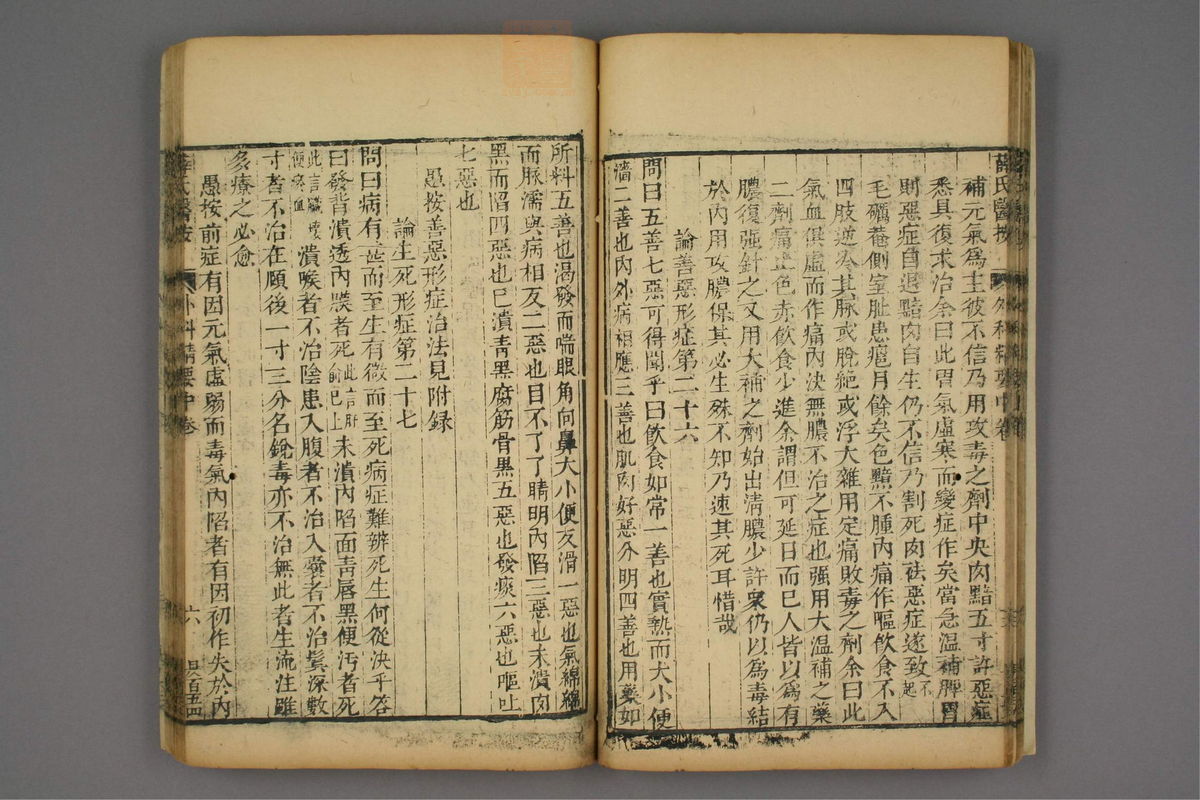 薛氏醫按 外科精要中卷
補元氣為主彼不信乃用攻毒之劑中央肉黯五寸許惡症
悉具復求治余曰此胃氣虛寒而變症作矣當急溫補脾胃
則惡症自退黯肉自生仍不信乃割死肉祛惡症遂致不起
毛礪菴側室趾患瘡月餘矣色黯不腫內痛作嘔飲食不入
四肢逆冷其脉或脫絕或浮大雜用定痛敗毒之劑余曰此
氣血俱虛而作痛內決無膿不治之症也强用大溫補之藥
二劑痛止色赤飲食少進余謂但可延日而已人皆以為有
膿復强針之又用大補之劑始出清膿少許衆仍以為毒結
於內用攻膿保其必生殊不知乃速其死耳惜哉
論善惡形症第二十六
問曰五善七惡可得聞乎曰飲食如常一善也實熱而大小便
濇二善也內外病相應三善也肌肉好惡分明四善也用藥如
所料五善也渴發而喘眼角向鼻大小便反滑一惡也氣綿綿
而脉濡與病相反二惡也目不了了睛明內陷三惡也未潰肉
黑而陷四惡也已潰青黑腐筋骨黑五惡也發痰六惡也嘔吐
七惡也
愚按善惡形症治法見附録
論生死形症第二十七
問曰病有甚而至生有微而至死病症難辨死生何從決乎答
曰發背潰透內膜者死此言肝俞已上未潰內陷面青唇黑便汚者死
此言臟壞便瘀血潰喉者不治陰患入腹者不治入囊者不治鬓深數
寸者不治在頤後一寸三分名銳毒亦不治無此者生流注雖
多療之必愈
愚按前症有因元氣虛弱而毒氣內陷者有因初作失於內
薛氏醫按 外科精要中卷 六